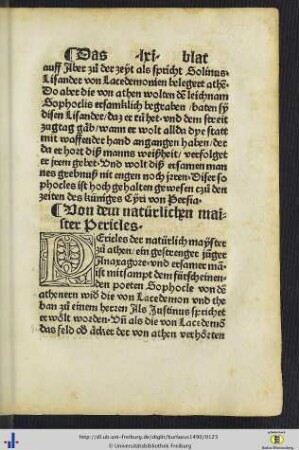 ¶Das ·lxi· blat
auff Aber zů der zeyt als spricht Solinus·
Lisander von Lacedemonien belegert athē·
Do aber die von athen wolten dē leichnam
Sophoclis ersamklich begraben / baten sy
disen Lisander / daz er růhet · vnd dem streit
zugtag gāb / wann er wolt all da dye statt
mit waffender hand angangen haben / der
da er hort diß manns weißheit / verfolget
er jrem gebet · Vnd wolt diß ersamen man
nes grebnuß nit engen noch jrren · Diser so
phocles ist hoch gehalten gewesen czů den
zeiten des küniges Cyri von Persia·
¶Von dem natürlichen mai-
ster Pericles·
PEricles der natürlich mayster
zů athen / ein gestrenger jüger
Anaxagore · vnd ersamer mā·
ist mitsampt dem fürscheinen-
den poeten Sophocle von dē
athenern wid die von Lacedemon vnd the
ban zů einem herren Als Justinus sprichet
er wölt worden · Vñ als die von Lacedemō
das feld oð äcker der von athen verhörten
http://dl.ub.uni-freiburg.de/diglit/burlaeus1490/0123
© Universitätsbibliothek Freiburg